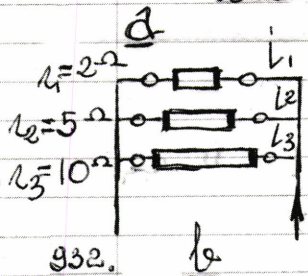 a
r₁=2Ω i₁
r₂=5Ω i₂
r₃=10Ω i₃
932. b